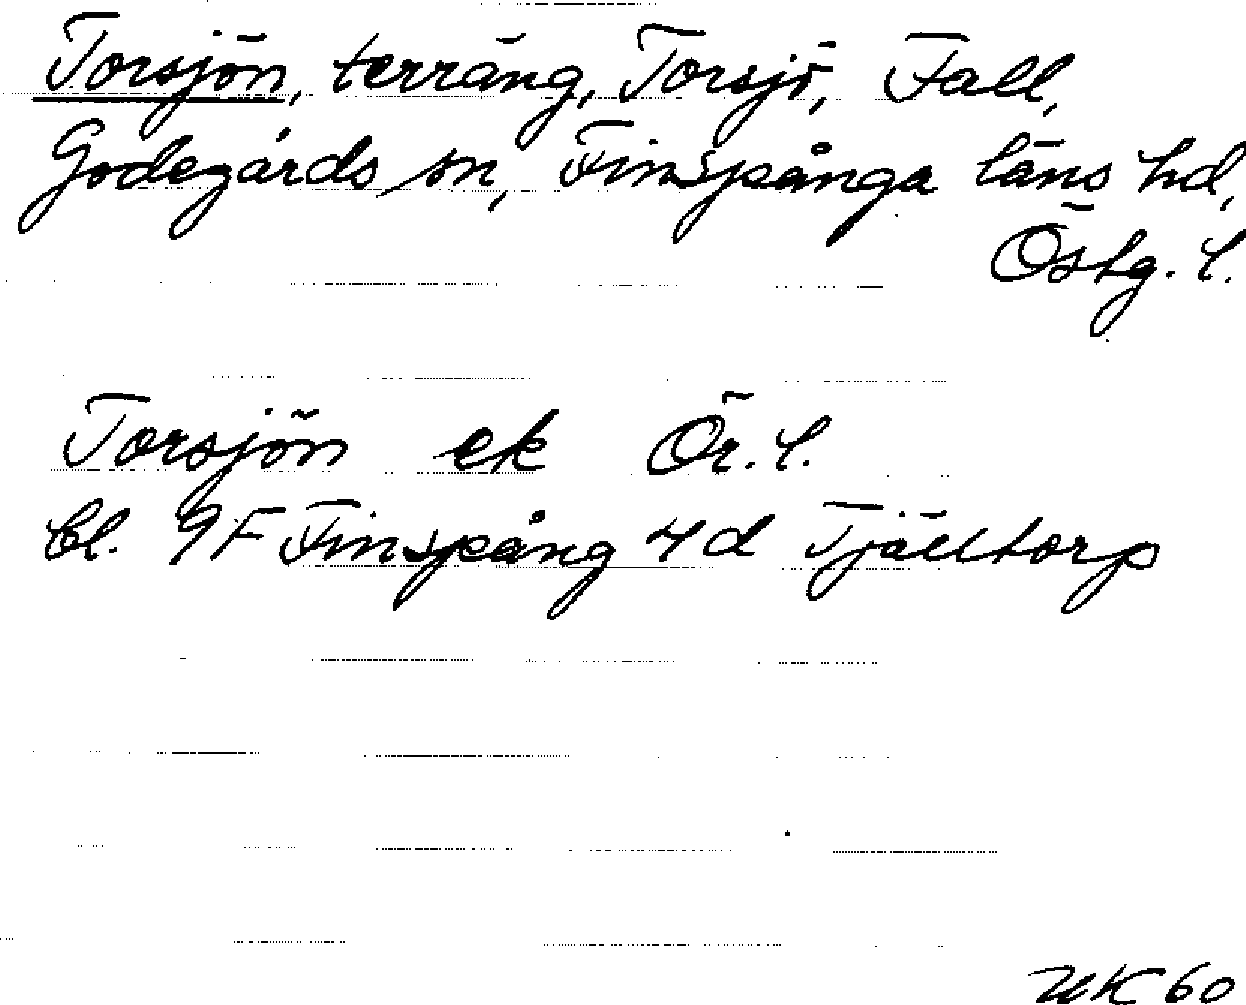 Torsjön, terräng, Torsjö, Fall,
Godegårds sn, Finspånga läns hd,
Östg. l.
Torsjön ek Ör. l.
bl. 9F Finspång 4d Tjälltorp
UK 60